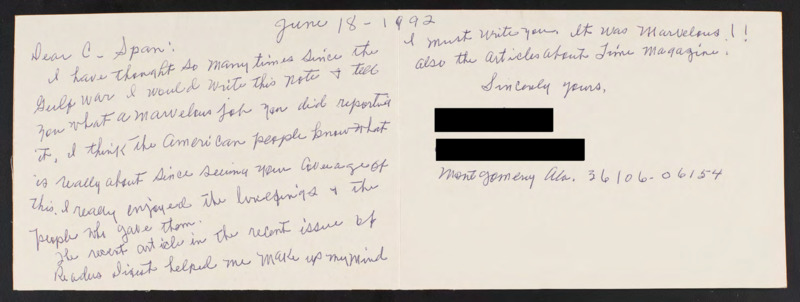 June 18-1992
Dear C-Span:
I have thought so many times since the
Gulf War I would write this note & tell
you what a marvelous job you did reporting
it, I think the American people know what
is really about since seeing your coverage of
this. I really enjoyed the briefings & the
people who gave them.
The recent article in the recent issue of
Readers Digest helped me make up my mind
I must write you. It was Marvelous!!
also the Articles about Time Magazine.
Sincerely yours,
Montgomery Ala. 36106-06154